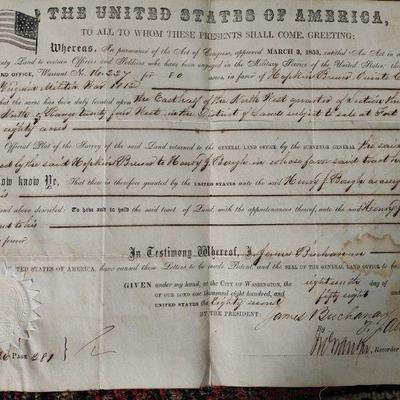 THE UNITED STATES OF AMERICA,
TO ALL TO WHOM THESE PRESENTS SHALL COME, GREETING:
Whereas, In pursuance of the Act of Congress, approved MARCH 3, 1855, entitled An Act in a
ty Land to certain Officers and Soldiers who have been engaged in the Military Service of the United States, the
AND OFFICE, Warrant No. 16.227 for 80 acres, in favor of Hopkin Private C
Virginia Militia War 1812
that the same has been duly located upon the East half of the North West quarter of Section
North of Range twenty four West in the District of Lands subject to sale at Fort
eighty acres
Official Plat of the Survey of the said Land returned to the GENERAL LAND OFFICE by the SURVEYOR GENERAL the said
by the said Hopkin to Henry J. Bough in whose favor said tract
ow Ye, That there is therefore granted by the UNITED STATES unto the said Henry J. Bough as assig
and above described: To have and to hold the said tract of Land, with the appurtenances thereof, unto the said Henry J
and to his
In Testimony Whereof, I, James Buchanan
ITED STATES OF AMERICA, have caused these Letters to be made Patent, and the SEAL of the GENERAL LAND OFFICE to
GIVEN under my hand, at the CITY OF WASHINGTON, the eighteenth day of
OF OUR LORD one thousand eight hundred, and fifty eight
UNITED STATES the Eighty second
BY THE PRESIDENT: James Buchanan
By
Recorder
PAGE 281